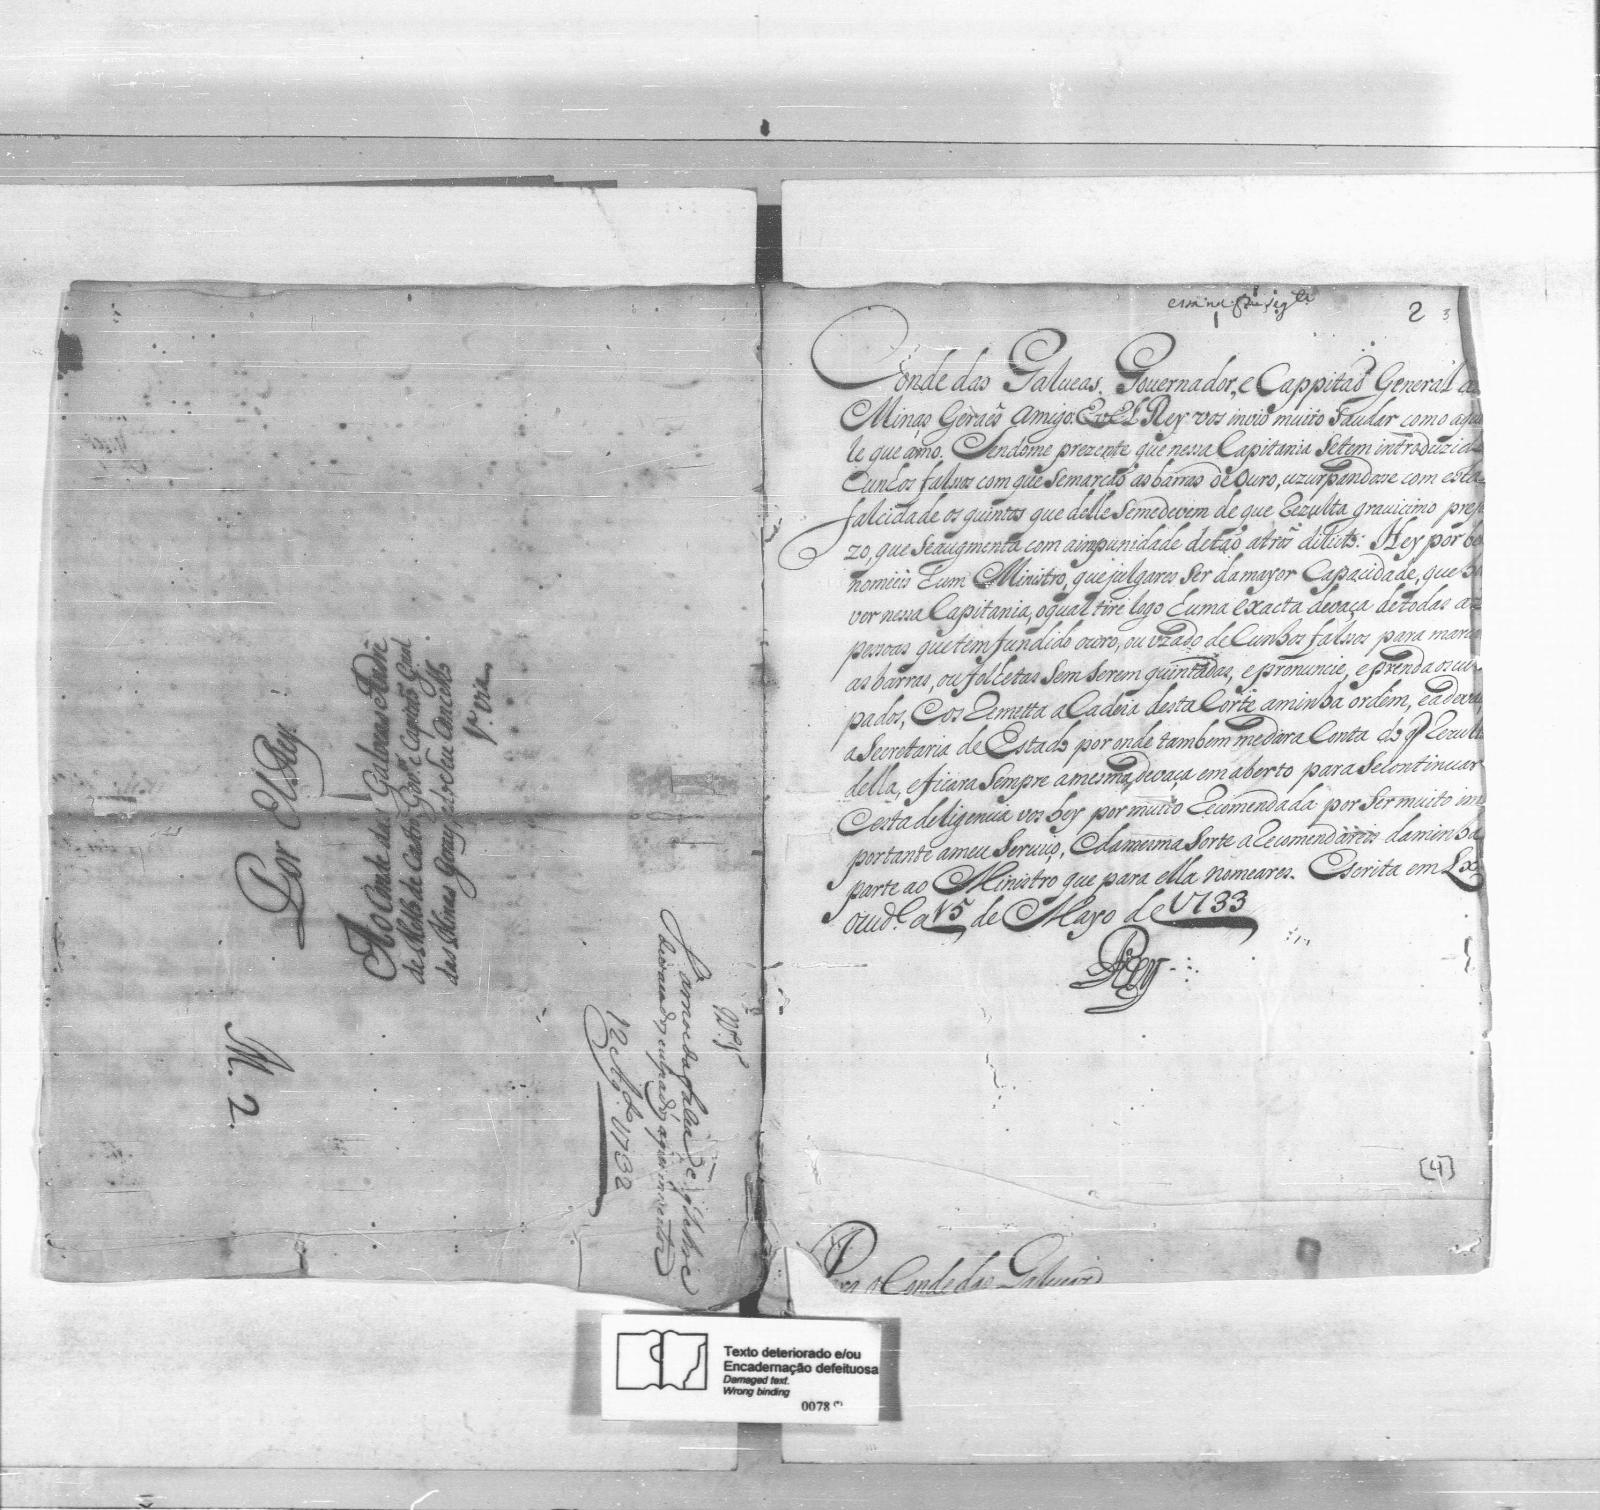 Por ElRey.
Ao Conde das Galveas Andre
de Mello de Castro Gov.or e Capitaõ Gnal.
das Minas Geraes do seu Concelho
1.a via
M. 2.
N.º
12 Ag.to 1732
2
3
Conde das Galueas, Gouernador, e Cappitaõ General das
Minas Geraes Amigo. Eu El Rey vos invio muito saudar como aque
le que amo. Sendome prezente que nessa Capitania setem introduzido
Cunhos falsos com que semarcaõ as barras de Ouro, uzurpandose com esta
falcidade os quintos que delle semedevem de que rezulta grauicimo prejui
zo, que seaugmenta com aimpunidade detaõ atrós delicto: Hey por bem
nomieis hum Ministro, que julgares ser da mayor Capacidade, que hou
ver nessa Capitania, oqual tire logo huma exacta devaça detodas as
pessoas que tem fundido ouro, ou vzado de Cunhos falsos para marcar
as barras, ou folhetas sem serem quintadas, e pronuncie, e prenda os cul
pados, e os remetta a Cadeia desta Corte aminha ordem, e a devaça
a Secretaria de Estado por onde tambem medara Conta do q rezultar
della, e ficara sempre amesma devaça em aberto para secontinuar
e esta deligencia vos hey por muito recomendada por ser muito im
portante ameu seruiço, e damesma sorte a recomendareis daminha
parte ao Ministro que para ella nomeares. Escrita em Lxa.
occid.l a 15 de Mayo de 1733
Rey
[4]
Para o Conde das Galueas
Texto deteriorado e/ou
Encadernação defeituosa
Damaged text.
Wrong binding
0078 (*)